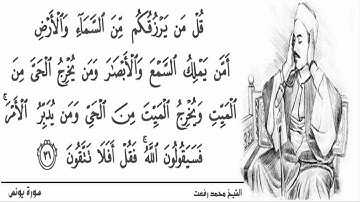 قُلْ مَن يَرْزُقُكُم مِّنَ ٱلسَّمَآءِ وَٱلْأَرْضِ
أَمَّن يَمْلِكُ ٱلسَّمْعَ وَٱلْأَبْصَٰرَ وَمَن يُخْرِجُ ٱلْحَىَّ مِنَ
ٱلْمَيِّتِ وَيُخْرِجُ ٱلْمَيِّتَ مِنَ ٱلْحَىِّ وَمَن يُدَبِّرُ ٱلْأَمْرَ ۚ
فَسَيَقُولُونَ ٱللَّهُ ۚ فَقُلْ أَفَلَا تَتَّقُونَ ٣١
سورة يونس
الشيخ محمد رفعت